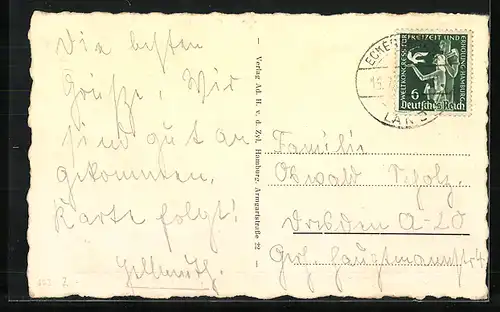 Die besten
Grüße. Wir
sind gut an
gekommen.
Karte folgt!
— Verlag Ad. H. v. d. Zyl, Hamburg, Armgartstraße 22 —
WELTKONGRESS FÜR FREIZEIT UND ERHOLUNG HAMBURG
6
Deutsches Reich
Familie
Oswald
Dresden A-20
Hauptmannstr